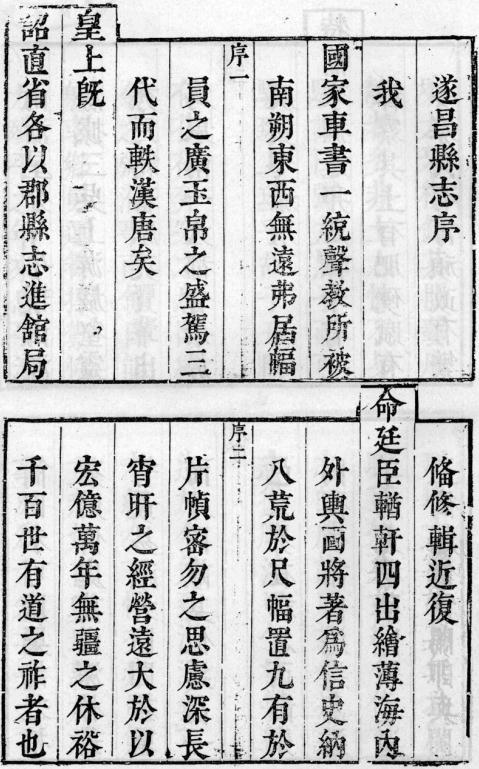 遂昌縣志序
我
國家車書一統聲教所被
南朔東西無遠弗屆幅
序一
員之廣玉帛之盛駕三
代而軼漢唐矣
皇上既
詔直省各以郡縣志進館局
偹修輯近復
命廷臣輶軒四出繪薄海內
外輿圖將著爲信史納
八荒於尺幅置九有於
序二
片幀宻勿之思慮深長
宵旰之經營遠大於以
宏億萬年無疆之休裕
千百世有道之祚者也